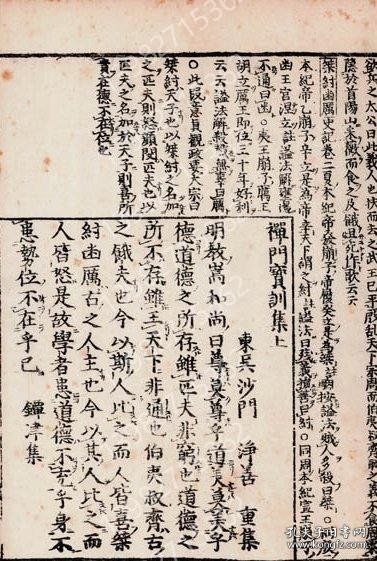 欲兵之太公曰此義人也扶而去之武王已平殷乱天下宗周而伯夷叔齊耻之義不食周
隱於首陽山采薇而食之及餓且死作歌云云
桀紂幽厲史記卷二夏本紀帝發崩子帝履癸立是為桀註駰按謚法賊人多殺曰桀○同
本紀帝乙崩子辛立是為帝辛天下謂之紂註謚法曰殘義損善曰紂○同周本紀宣王
幽王宮湼立註謚法解雍遏
不通曰幽○夷王崩子厲王
胡立厲王即位三十年好利
云云謚法解殺戮無辜曰厲
○此段意貞觀政要太宗曰
桀紂天子也以桀紂之名加
之匹夫則怒顔閔匹夫也以
匹夫之名加於天子則喜所
貴在德不在位也
禪門寶訓集上
東吳沙門 淨善 重集
明教嵩和尚曰尊莫尊乎道美莫美乎
德道德之所存雖匹夫非窮也道德之
所不存雖王天下非通也伯夷叔齊古
之餓夫也今以斯人比之而人皆喜桀
紂幽厲古之人主也今以其人比之而
人皆怒是故學者患道德不充乎身不
患勢位不在乎己 鐔津集
孔夫子旧书网